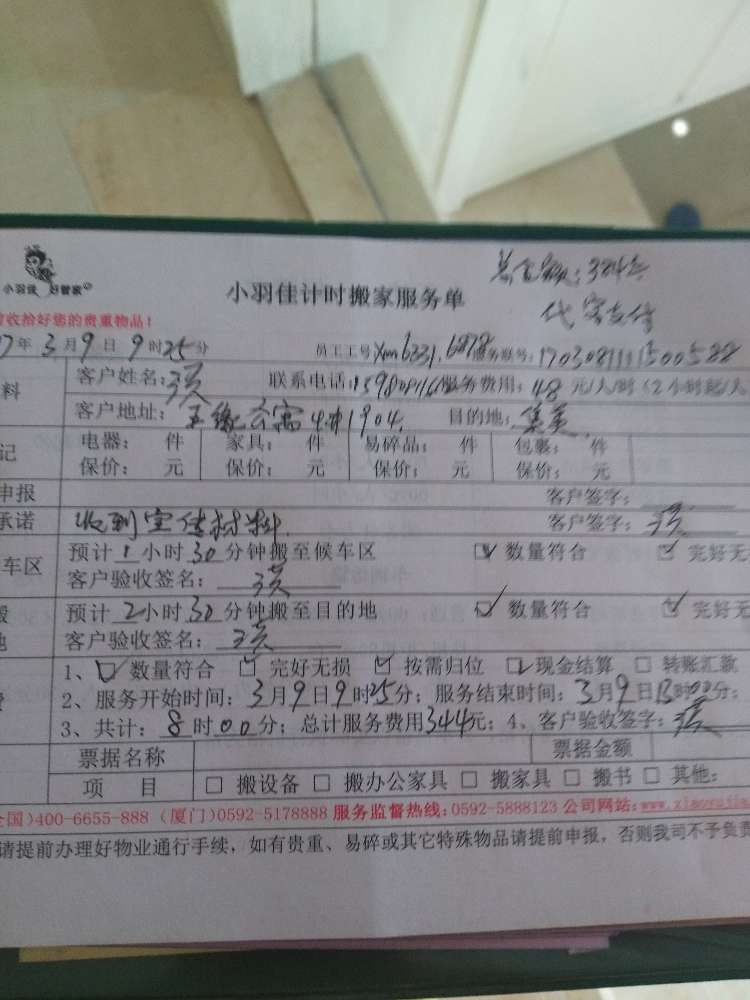 总金额：384元
代客支付
小羽佳 好管家
小羽佳计时搬家服务单
收拾好您的贵重物品！
7年3月9日9时25分 员工工号Xm6331.6878服务账号：170308111500588
客户姓名：洪 联系电话： 服务费用：48元/人/时（2小时起/人
客户地址：公寓4#1904. 目的地：集美
电器： 件 家具： 件 易碎品： 件 包裹： 件
保价： 元 保价： 元 保价： 元 保价： 元
申报 客户签字：
承诺 收到宣传材料. 客户签字：洪
车区 预计1小时30分钟搬至候车区 数量符合 完好无
客户验收签名：洪
预计2小时30分钟搬至目的地 数量符合 完好无
客户验收签名：洪
1、数量符合 完好无损 按需归位 现金结算 转账汇款
2、服务开始时间：3月9日9时25分；服务结束时间：3月9日13时00分；
3、共计：8时00分；总计服务费用344元；4、客户验收签字：洪
票据名称 票据金额
项 目 搬设备 搬办公家具 搬家具 搬书 其他：
全国)400-6655-888 (厦门)0592-5178888 服务监督热线：0592-5888123 公司网站：
请提前办理好物业通行手续，如有贵重、易碎或其它特殊物品请提前申报，否则我司不予负责